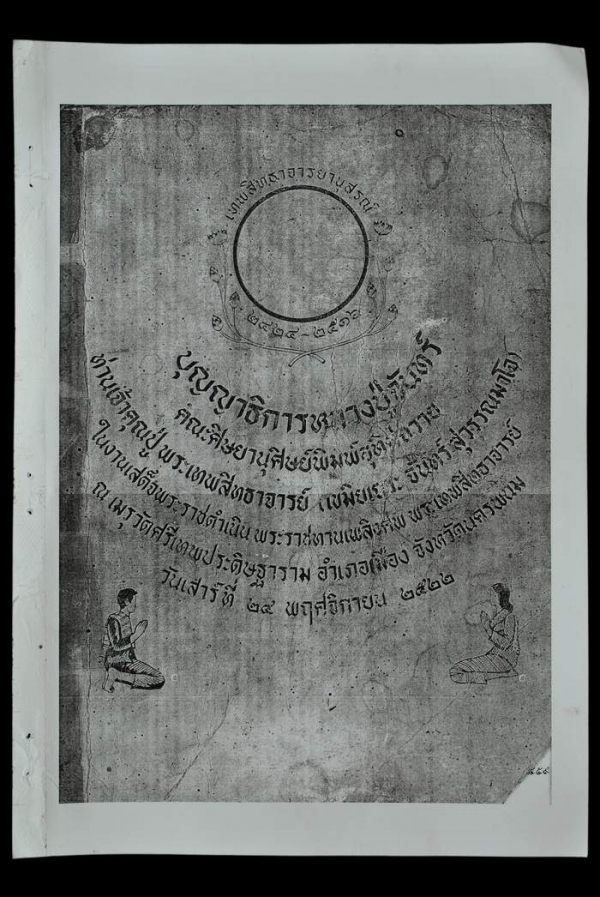 เทพสิทธาจารยานุสรณ์
๒๔๒๔-๒๕๑๖
บุญญาธิการหลวงปู่จันทร์
คณะศิษยานุศิษย์พิมพ์สุทิศถวาย
ท่านเจ้าคุณปู่ พระเทพสิทธาจารย์ (เขมิยเถระ จันทร์ สุวรรณมาโจ)
ในงานเสด็จพระราชดำเนิน พระราชทานเพลิงศพ พระเทพสิทธาจารย์
ณ เมรุวัดศรีเทพประดิษฐาราม อำเภอเมือง จังหวัดนครพนม
วันเสาร์ที่ ๒๔ พฤศจิกายน ๒๕๒๒